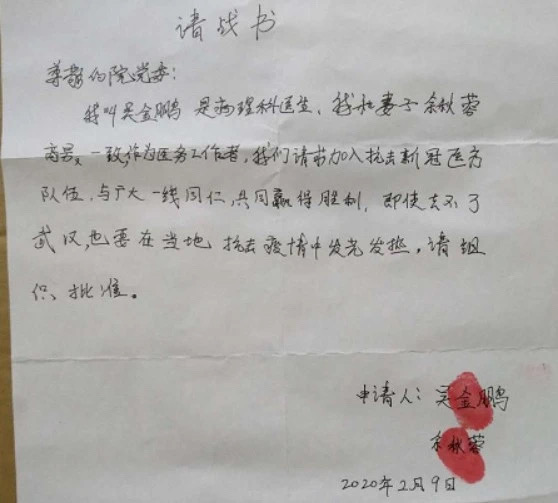 请战书
尊敬的院党委:
我叫吴金鹏 是病理科医生、我和妻子余秋蓉
商量,一致作为医务工作者,我们请求加入抗击新冠医务
队伍,与广大一线同仁,共同赢得胜利,即使去不了
武汉,也要在当地 抗击疫情中发光发热,请组
织、批准。
申请人:吴金鹏
余秋蓉
2020年2月9日